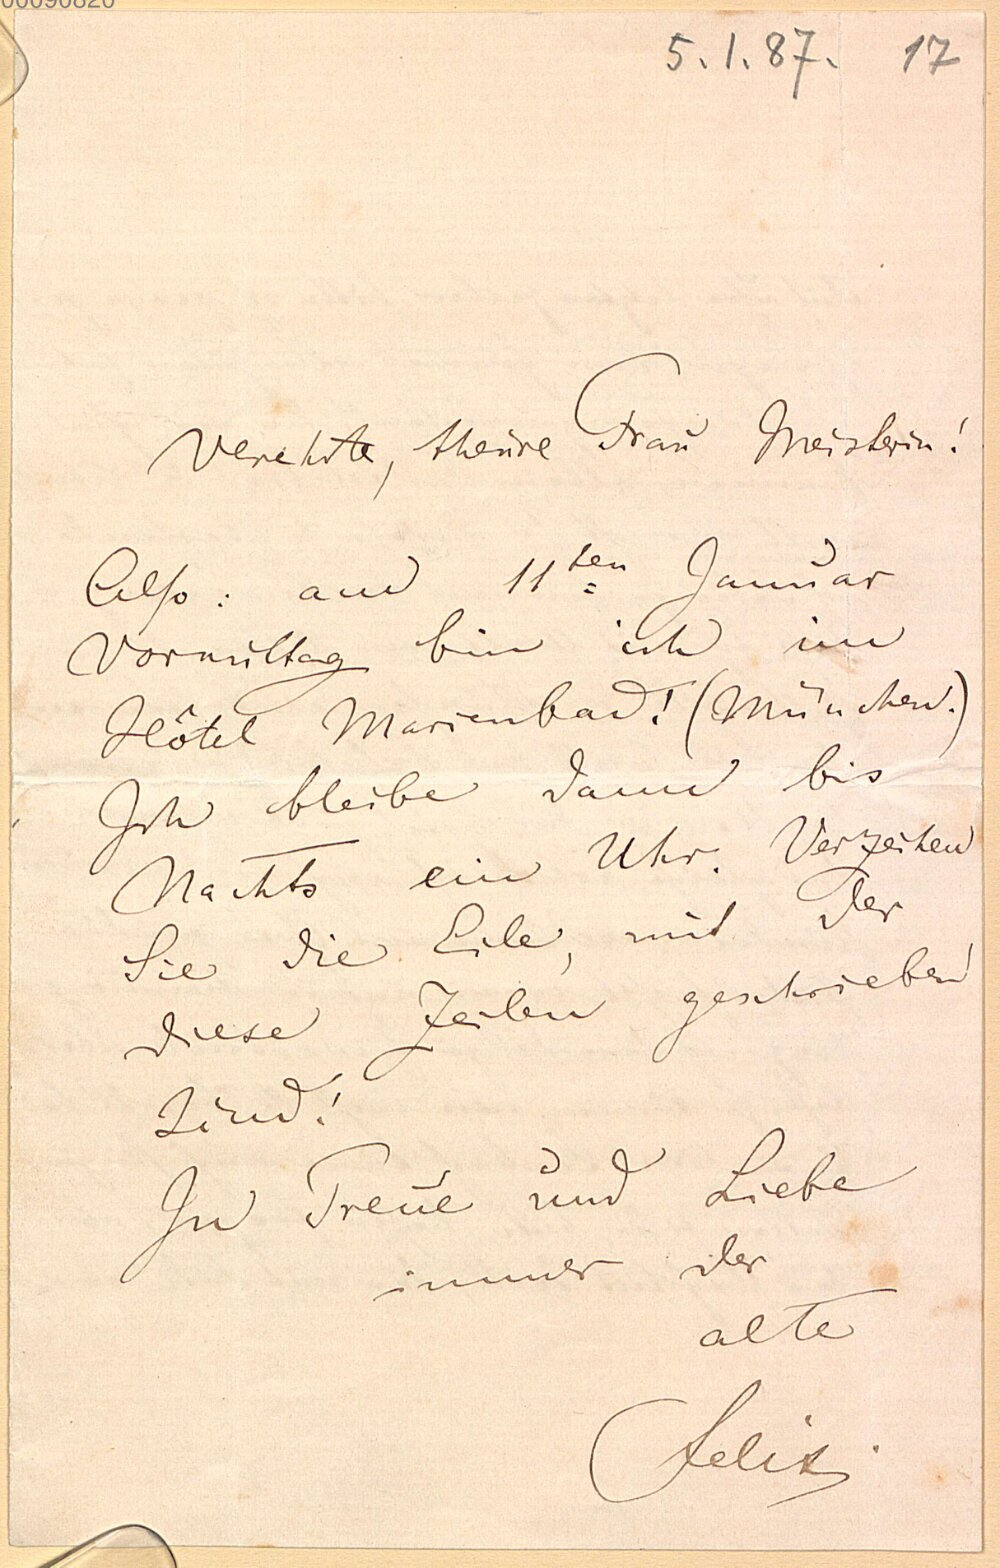 00090820
5.1.87. 17
Verehrte, theure Frau Meisterin!
Also: am 11ten Januar
Vormittag bin ich im
Hôtel Marienbad! (München.)
Ich bleibe dann bis
Nachts ein Uhr. Verzeihen
Sie die Eile, mit der
diese Zeilen geschrieben
sind!
In Treue und Liebe
immer der
alte
Felix.